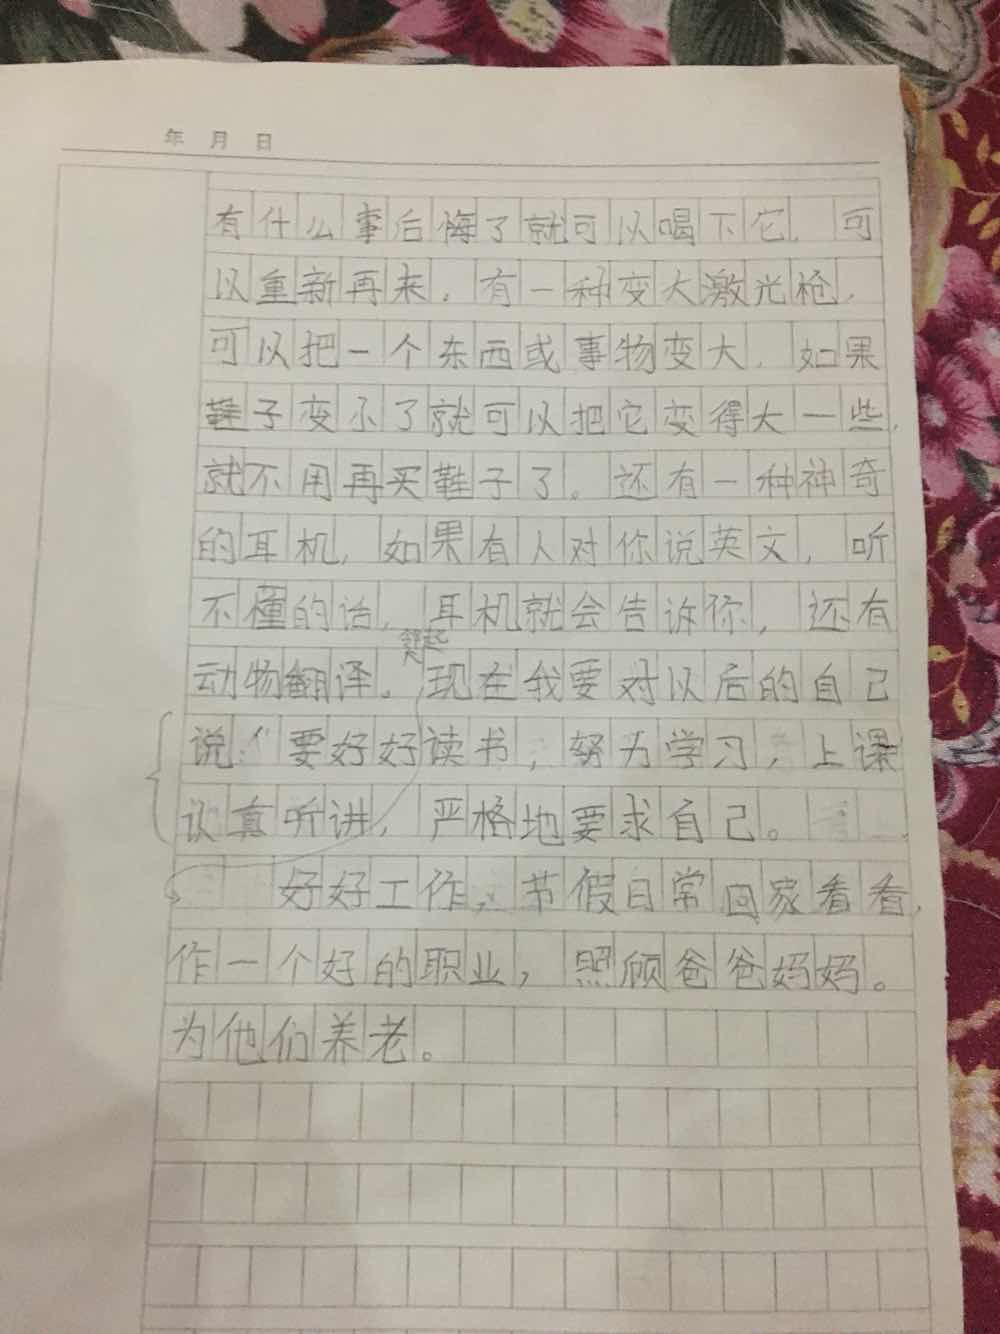 年 月 日
有什么事后悔了就可以喝下它，可
以重新再来。有一种变大激光枪，
可以把一个东西或事物变大，如果
鞋子变小了就可以把它变得大一些，
就不用再买鞋子了。还有一种神奇
的耳机，如果有人对你说英文，听
不懂的话，耳机就会告诉你，还有
另起
动物翻译。现在我要对以后的自己
说：“要好好读书，努力学习，上课
认真听讲，严格地要求自己。
好好工作，节假日常回家看看，
作一个好的职业，照顾爸爸妈妈。
为他们养老。